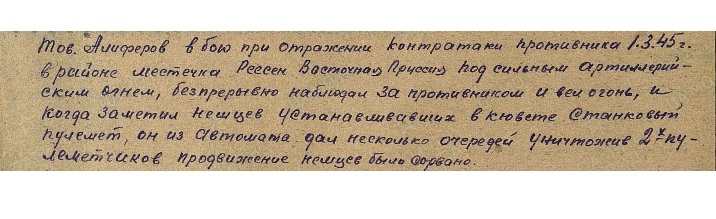 Тов. Алиферов в бою при отражении контратаки противника 1.3.45 г.
в районе местечка Рессен Восточная Пруссия под сильным артиллерий-
ским огнем, безпрерывно наблюдал за противником и вел огонь, и
когда заметил немцев устанавливавших в кювете станковый
пулемет, он из автомата дал несколько очередей уничтожив 2х пу-
леметчиков продвижение немцев было сорвано.